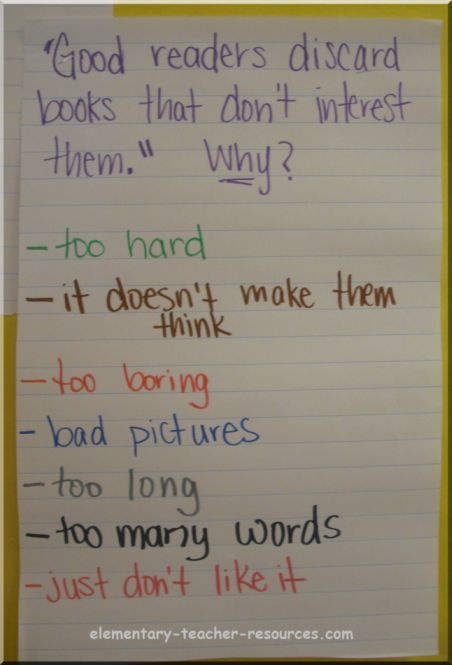 "Good readers discard
books that don't interest
them." Why?
- too hard
- it doesn't make them
think
- too boring
- bad pictures
- too long
- too many words
- just don't like it
elementary-teacher-resources.com